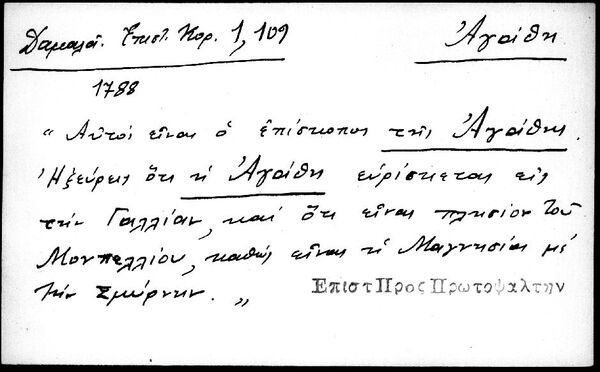 Δαμαλᾶ. Ἐπιστ. Κορ. 1, 109 Ἀγάθη
1788
" Αὐτοῦ εἶναι ὁ ἐπίσκοπος τῆς Ἀγάθης.
Ἠξεύρεις ὅτι ἡ Ἀγάθη εὑρίσκεται εἰς
τὴν Γαλλίαν, καὶ ὅτι εἶναι πλησίον τοῦ
Μονπελλίου, καθὼς εἶναι ἡ Μαγνησία μὲ
τὴν Σμύρνην. "
Επιστ Προς Πρωτοψαλτην